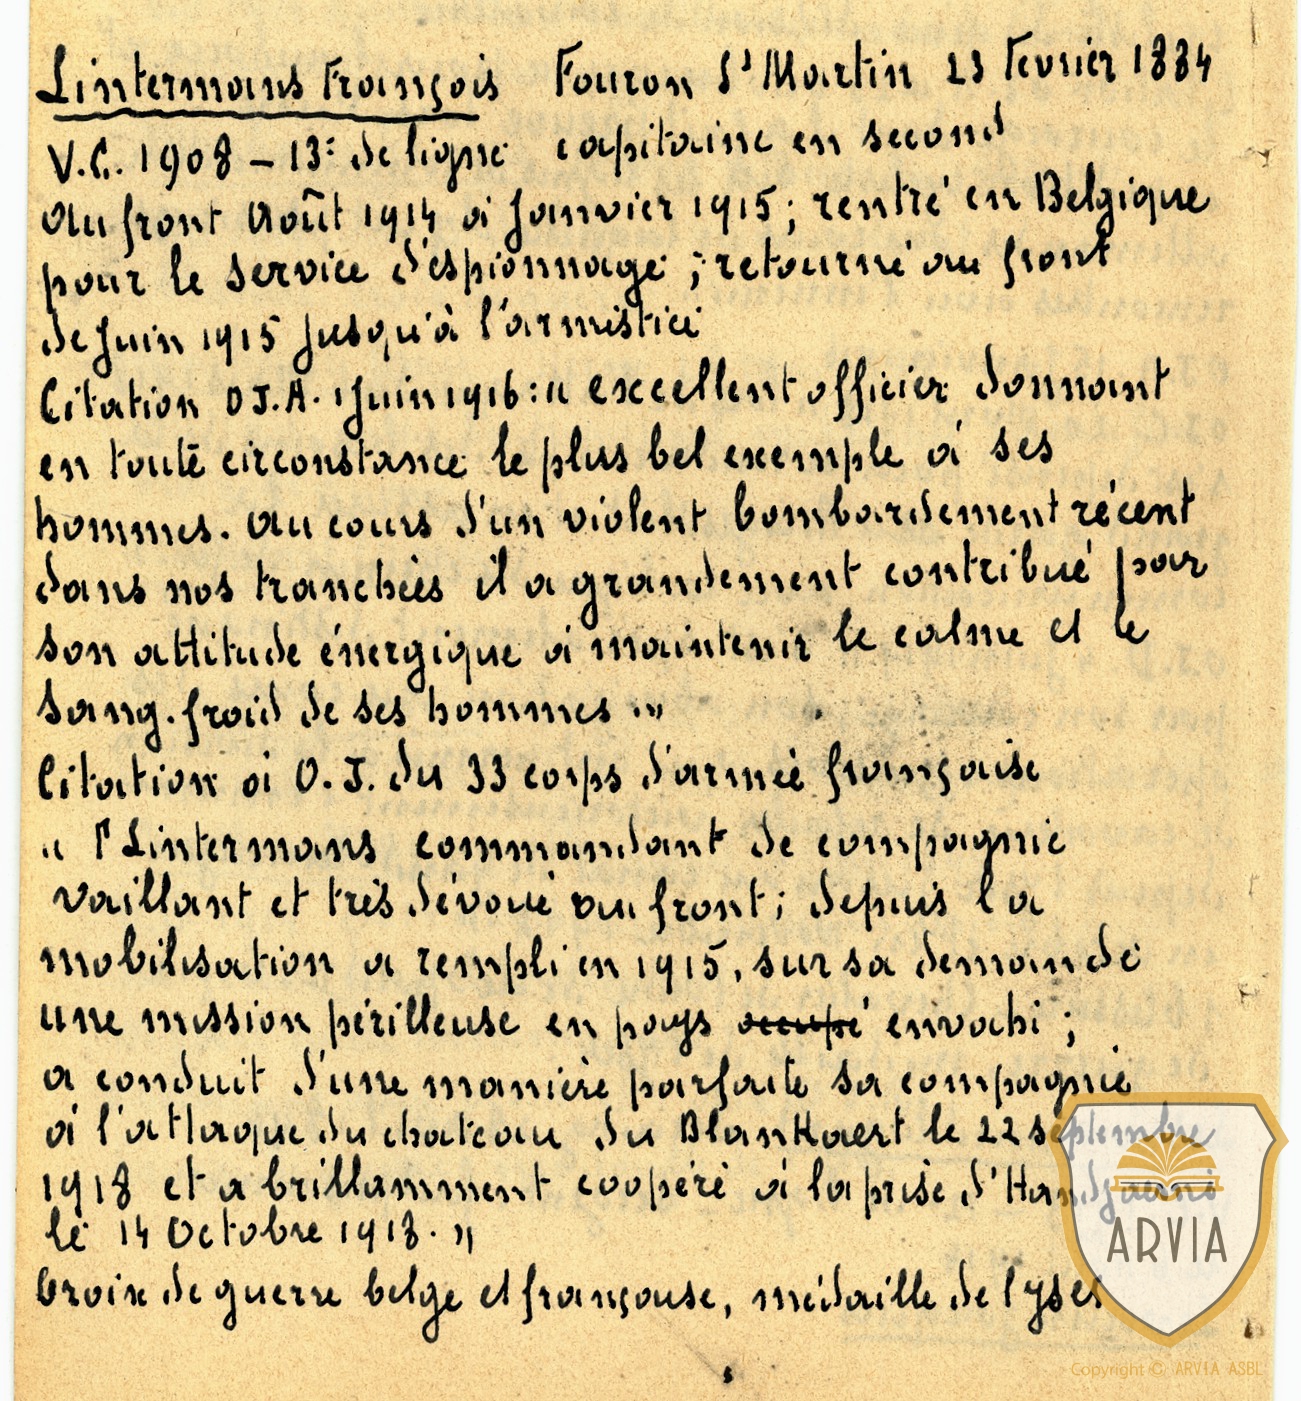 Lintermans François Fouron St Martin 23 Fevrier 1884
V.C. 1908 – 13e de ligne capitaine en second
Au front Août 1914 à Janvier 1915; rentré en Belgique
pour le service d'espionnage; retourné au front
de Juin 1915 jusqu'à l'armistice
Citation O J.A. 1 Juin 1916: « excellent officier donnant
en toute circonstance le plus bel exemple à ses
hommes. Au cours d'un violent bombardement récent
dans nos tranchées il a grandement contribué par
son attitude énergique à maintenir le calme et le
sang-froid de ses hommes. »
Citation à O. J. du 33 corps d'armée française
« Lt Lintermans commandant de compagnie
vaillant et très dévoué au front; depuis la
mobilisation a rempli en 1915, sur sa demande
une mission périlleuse en pays occupé envahi;
a conduit d'une manière parfaite sa compagnie
à l'attaque du chateau du Blankaert le 22 septembre
1918 et a brillamment coopéré à la prise d'Handzaeme
le 14 Octobre 1918. »
Croix de guerre belge et française, médaille de l'yser
ARVIA
Copyright © ARVIA ASBL